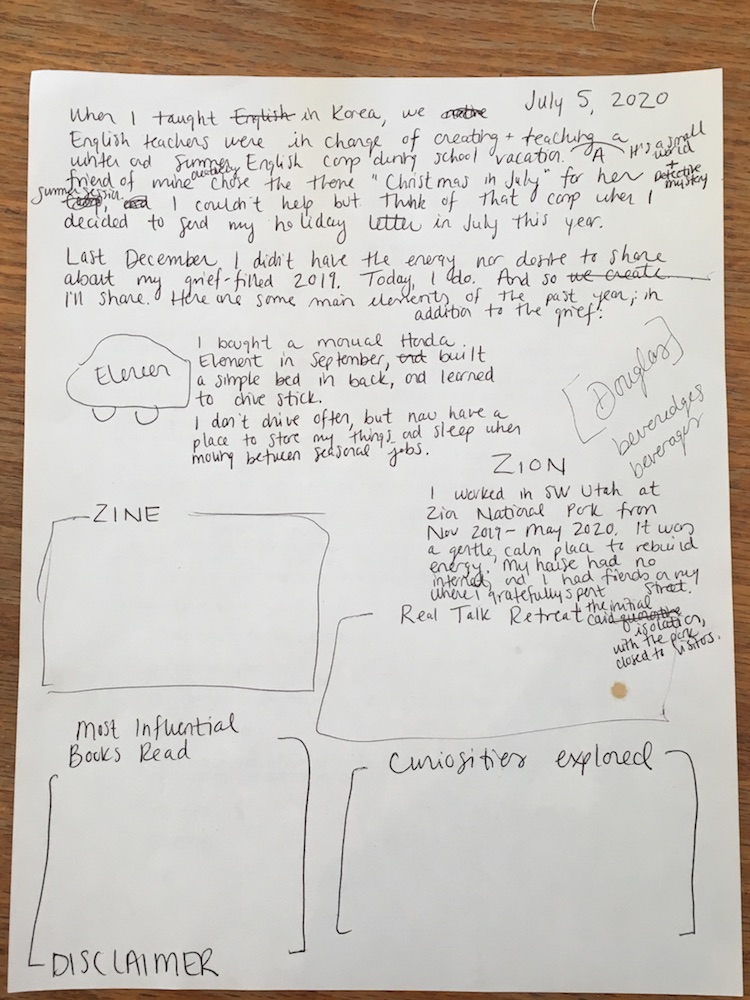 July 5, 2020
When I taught English in Korea, we native
English teachers were in charge of creating + teaching a
winter and summer English camp during school vacation. A
It's a small world + Detective mystery
friend of mine creatively chose the theme "Christmas in July" for her
summer session
camp, and I couldn't help but think of that camp when I
decided to send my holiday letter in July this year.
Last December I didn't have the energy nor desire to share
about my grief-filled 2019. Today, I do. And so we create
I'll share. Here are some main elements of the past year, in
addition to the grief:
I bought a manual Honda
Element in September, and built
a simple bed in back, and learned
to drive stick.
I don't drive often, but now have a
place to store my things and sleep when
moving between seasonal jobs.
[Douglas]
beveredges
beverages
ZION
I worked in SW Utah at
Zion National Park from
Nov 2019 - May 2020. It was
a gentle, calm place to rebuild
energy. My house had no
internet, and I had friends on my
street.
where I gratefully spent
the initial
covid quarantine
isolation,
with the park
closed to visitors.
ZINE
Real Talk Retreat
Most Influential
Books Read
Curiosities explored
DISCLAIMER